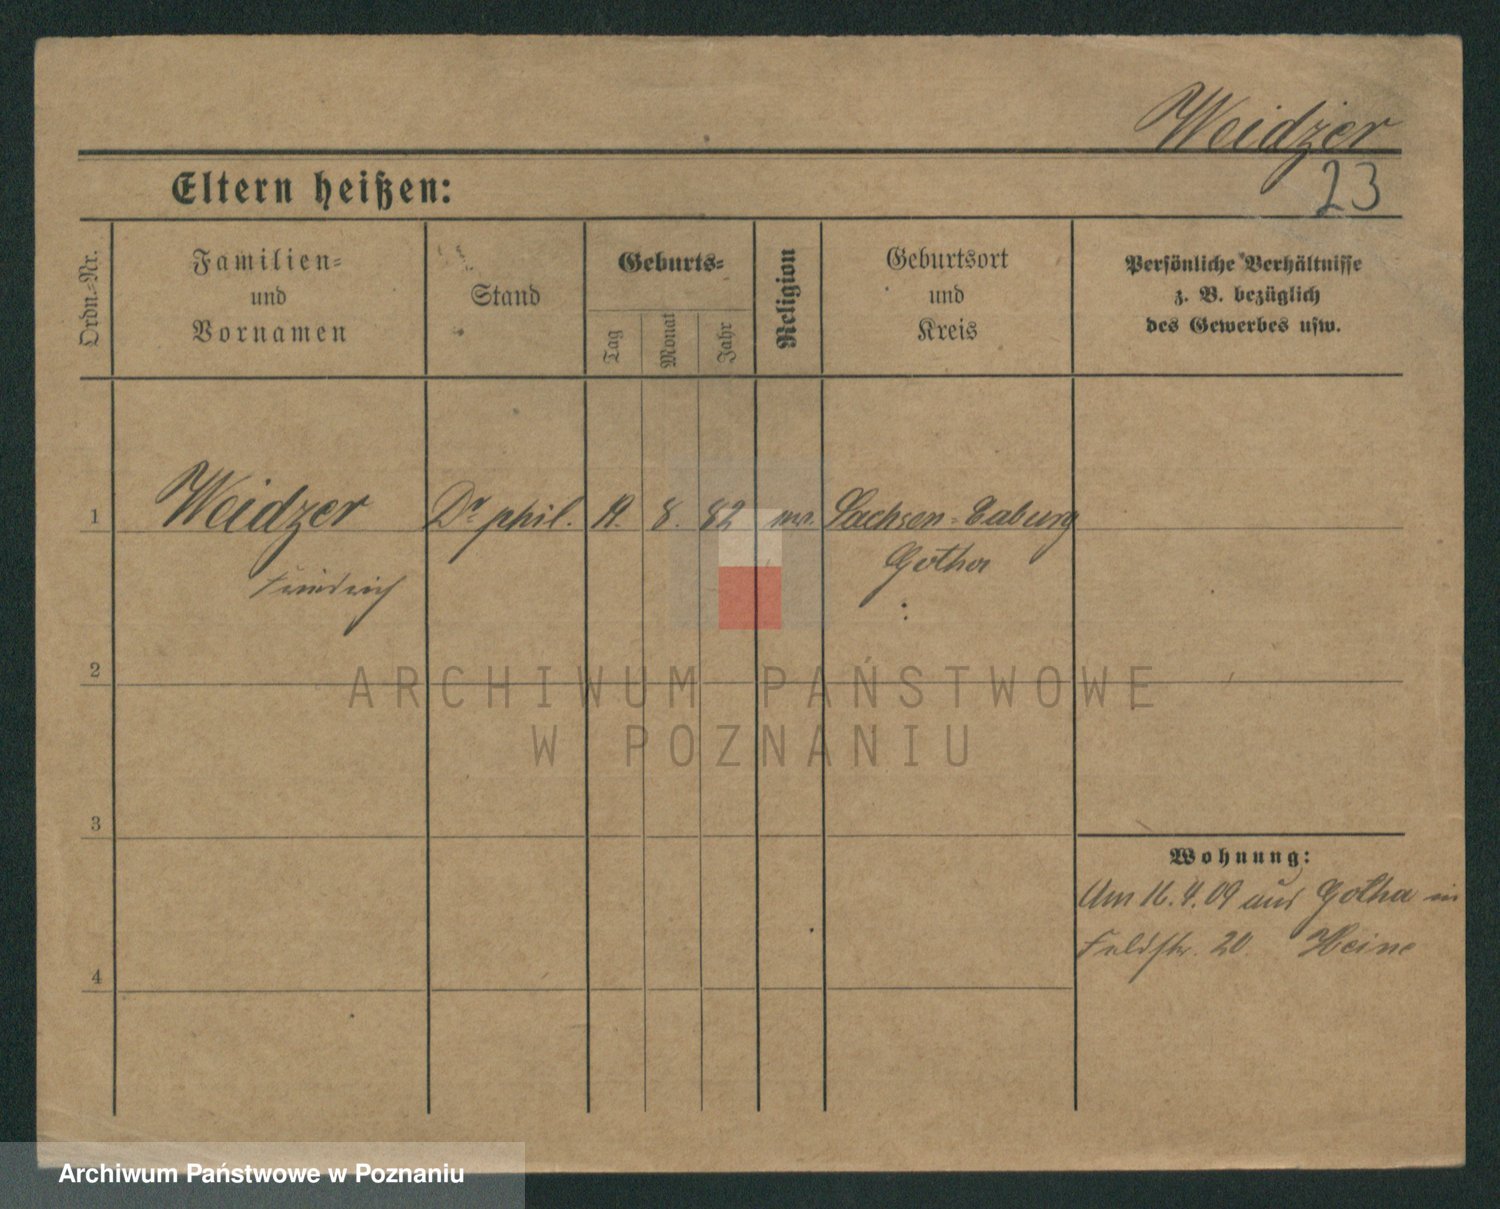 Weidzer
Eltern heißen:
23
Ordn.-Nr.
Familien-
und
Vornamen
Stand
Geburts-
Tag
Monat
Jahr
Religion
Geburtsort
und
Kreis
Persönliche Verhältnisse
z. B. bezüglich
des Gewerbes usw.
1
Weidzer Dr phil. 8. 82 Sachsen-
Friedrich Gotha
2
ARCHIWUM PAŃSTWOWE
W POZNANIU
3
Wohnung:
Am 16.4.09 aus Gotha in
Feldstr. 20. Heine
4
Archiwum Państwowe w Poznaniu